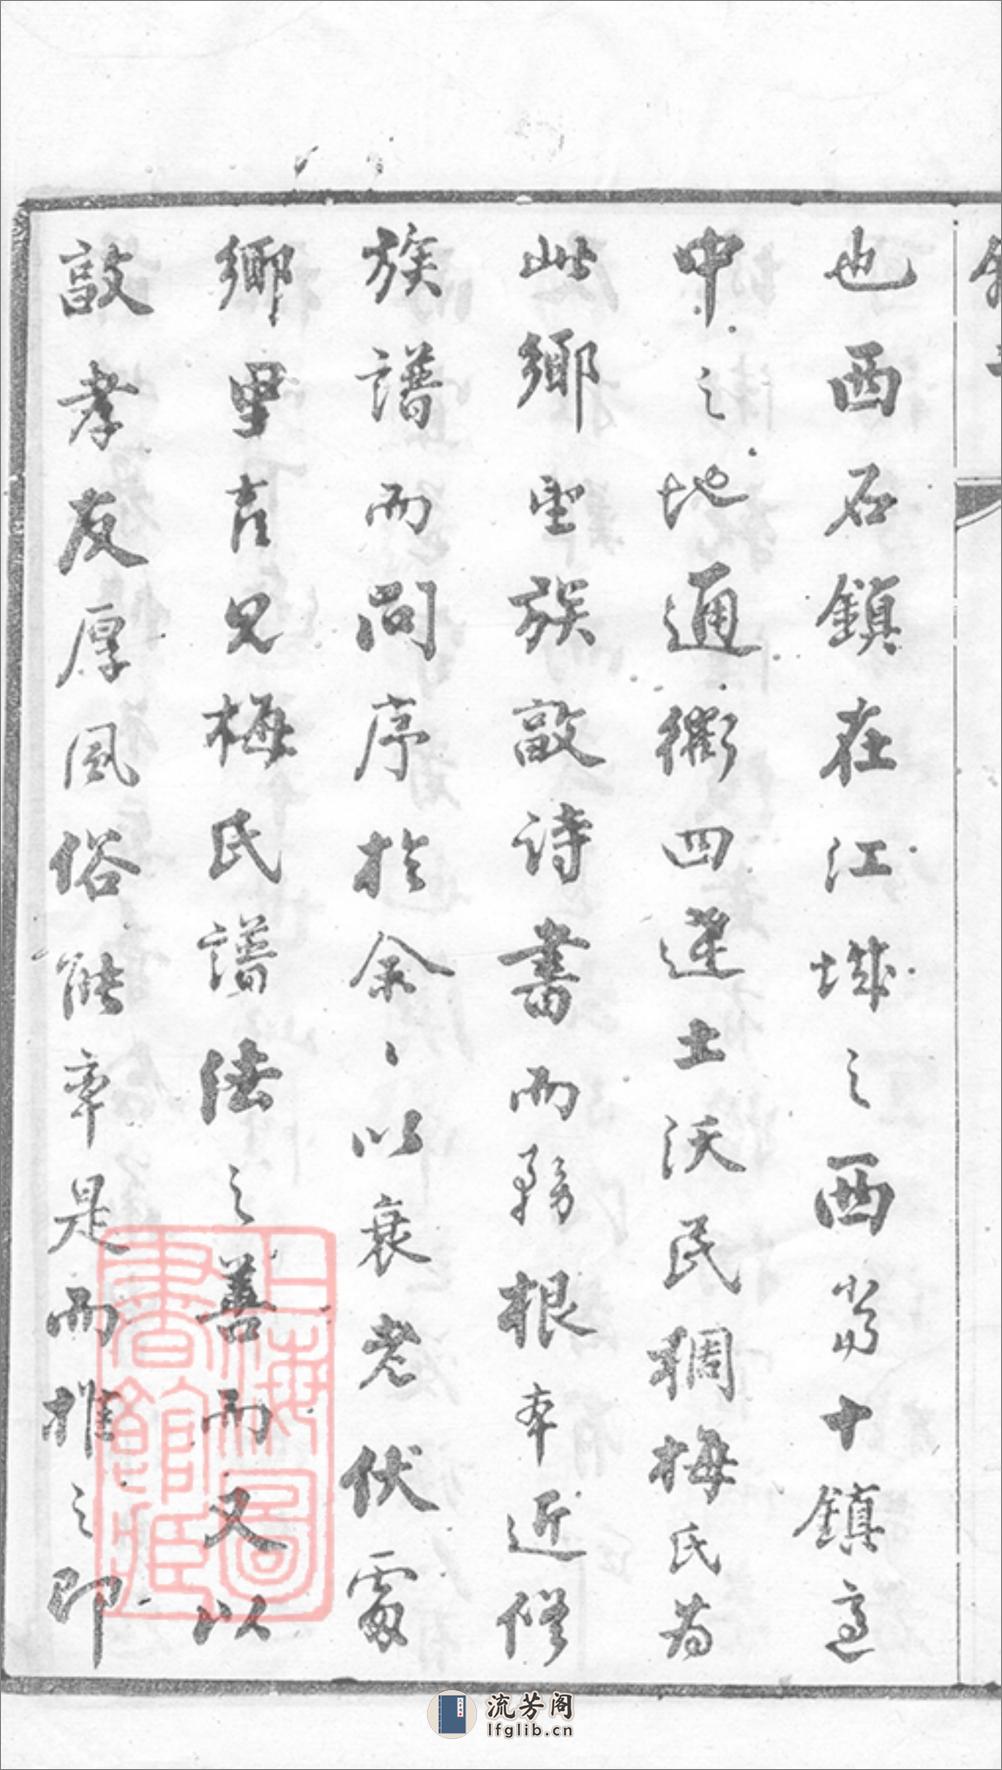 也西石鎮在江城之西為十鎮適
中之地通衢四達土沃民稠梅氏為
此鄉望族敦詩書而務根本近修
族譜而問序於余〻以衰老伏處
鄉里喜見梅氏譜法之善而又以
敦孝友厚風俗能率是而推之即
上海圖書館藏
流芳阁
lfglib.cn